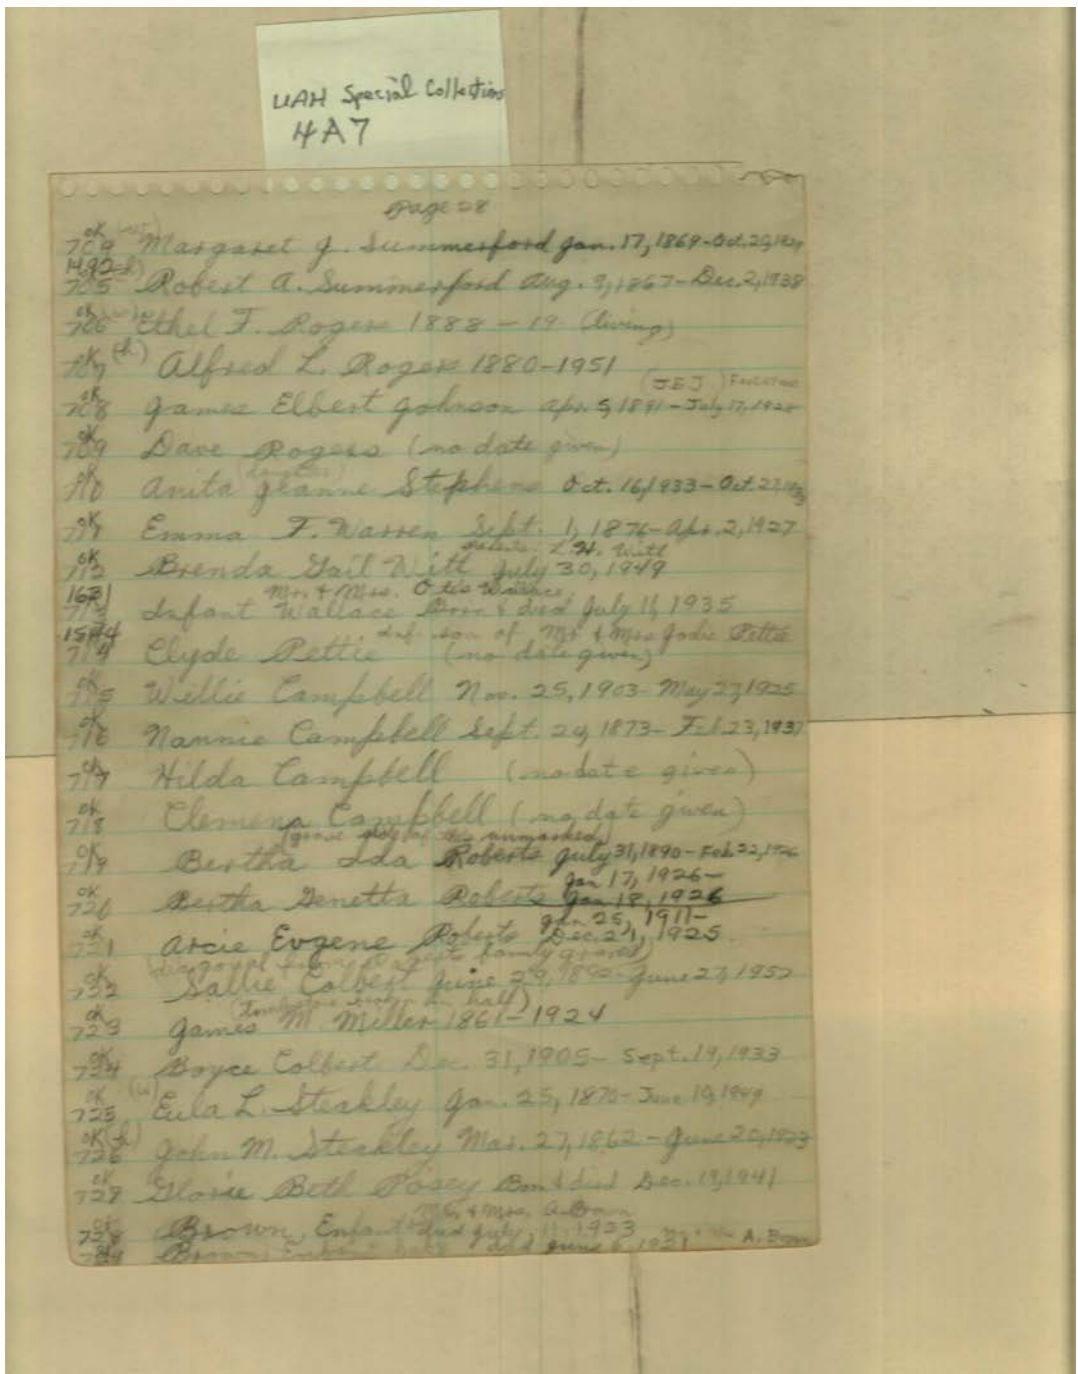 UAH Special Collections
4A7
Page 28
ok
704 Margaret J. Summerford Jan. 17, 1869-Oct. 29,
1492 (h)
705 Robert A. Summerford Aug. 9, 1867-Dec. 2, 1938
ok (w)
706 Ethel F. Rogers 1888-19 (living)
ok (h)
707 Alfred L. Rogers 1880-1951
(J.E.J.)
ok
708 James Elbert Johnson Apr. 5, 1891-July 17, 1928
ok
709 Dave Rogers (no date given)
(daughter)
ok
710 Anita Jeanne Stephens Oct. 16, 1933-Oct. 27,
ok
711 Emma F. Warren Sept. 1, 1876-Apr. 2, 1927
Parents: L.H. Witt
ok
712 Brenda Gail Witt July 30, 1949
1631 Mr. & Mrs. Otis Wallace
713 Infant Wallace Born & died July 11, 1935
1574 Inf son of Mr & Mrs Jodie Pettie
714 Clyde Pettie (no date given)
ok
715 Willie Campbell Nov. 25, 1903-May 27, 1925
ok
716 Nannie Campbell Sept. 24, 1873-Feb 23, 1937
ok
717 Hilda Campbell (no date given)
ok
718 Clemena Campbell (no date given)
(grave unmarked)
ok
719 Bertha Ida Roberts July 31, 1890-Feb. 22, 1926
Jan 17, 1926-
ok
720 Bertha Genetta Roberts Jan 18, 1926
Jan 25, 1911-
ok
721 Arcie Eugene Roberts Dec. 21, 1925
family graves)
ok
722 Sallie Colbert June 29, June 27, 1957
(tombstone broken in half)
ok
723 James M. Miller 1861-1924
ok
724 Boyce Colbert Dec. 31, 1905-Sept. 19, 1933
ok (w)
725 Eula L. Steakley Jan. 25, 1870-June 19, 1949
ok (h)
726 John M. Steakley Mar. 27, 1862-June 20, 1923
ok
727 Glorie Beth Posey Born & died Dec. 19, 1941
Mr. & Mrs. A. Brown
ok
728 Brown, Enfant died July 11, 1933
729 Brown, Enfant died June 6, 1931 A. Brown